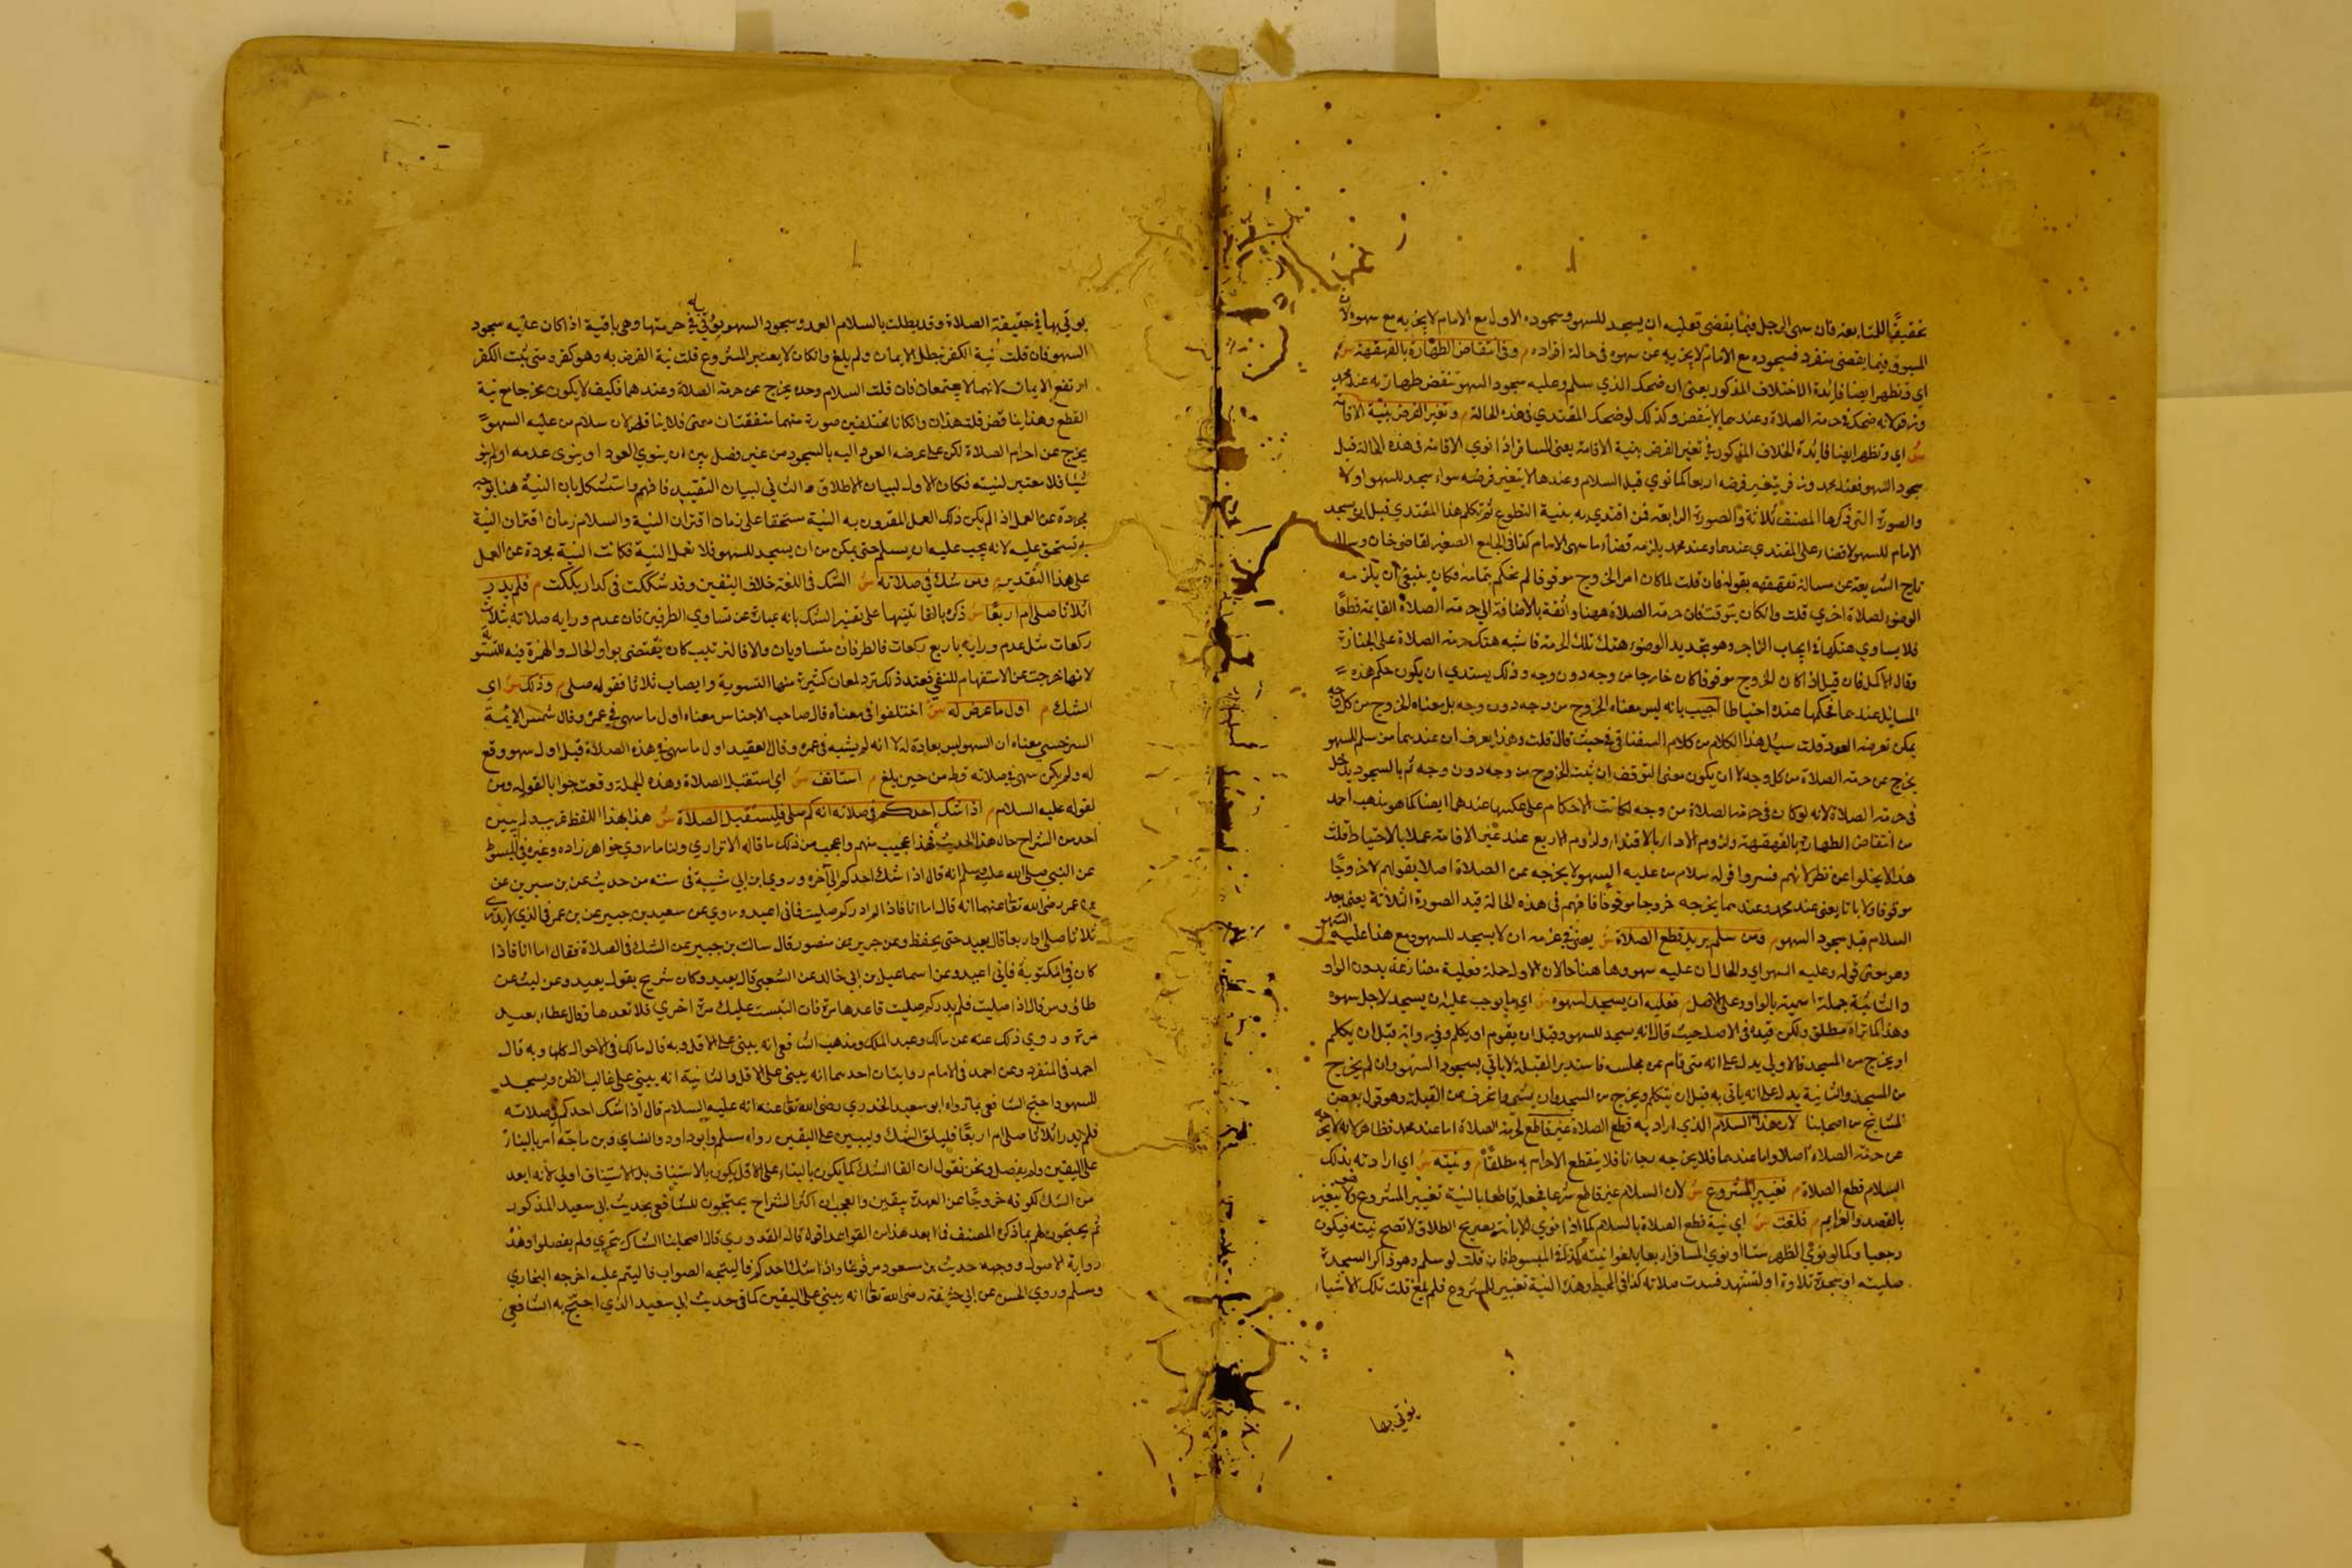 تحقيقًا للمتابعة فان سهى الرجل فيما يقضى تعليه ان يسجد للسهو وسجوده الاول مع الامام لا يجزيه مع سهوه لان
المسبوق فيما يقضى منفرد فسجوده مع الامام لا يجزيه عن سهوه فى حالة افراده م وفى انتقاض الطهارة بالقهقهة ش
اي وتظهر ايضا فايدة الاختلاف المذكور يعنى ان ضحك الذي سلم وعليه سجود السهو تنقض طهارته عند محمد
وزفر لانه ضحك فى حرمة الصلاة وعندهما لا ينتقض وكذلك لو ضحك المقتدي فى هذه الحالة م وتغير الفرض بنية الاقامة
ش اي وتظهر ايضا فايدة الخلاف المذكور فى تغير الفرض بنية الاقامة يعنى المسافر اذا نوى الاقامة فى هذه الحالة قبل
سجود السهو فعند محمد وزفر يتغير فرضه اربعا كما نوي قبل السلام وعندهما لا يتغير فرضه سواء سجد للسهو اولا
والصورة التى ذكرها المصنف ثلاثة والصورة الرابعة فمن اقتدي به بنية التطوع ثم تكلم هذا المقتدي قبل ان يسجد
الامام للسهو لا قضاء على المقتدي عندهما وعند محمد يلزمه قضاء ما سهى الامام كذا فى الجامع الصغير لقاضى خان وسال
تاج الشريعة عن مسالة تقهقهه بقوله فان قلت لما كان امر الخروج موقوفا لم نحكم بتمامه فكان ينبغى ان يلزمه
الوضوء لصلاة اخري قلت وان كان يتوقف كان حرمة الصلاة ههنا واقفة بالاضافة الى حرمة الصلاة القايمة قطعًا
فلا يساوي هتكها فى ايجاب الزاجر وهو تجديد الوضوء هتك تلك الحرمة فاشبه هتك حرمة الصلاة على الجنازة
وقال الاكمل فان قيل اذا كان الخروج موقوفا كان خارجا من وجه دون وجه وذلك يستدي ان يكون حكم هذه
المسايل عندهما كحكمها عنده احتياطا اجيب بانه ليس معناه الخروج من وجه دون وجه بل معناه الخروج من كل وجه
يمكن بعرضه العود قلت سيل هذا الكلام من كلام السغناقى حيث قال قلت وهذا يعرف ان عندهما من سلم للسهو
يخرج عن حرمة الصلاة من كل وجه لا ان يكون معنى التوقف ان يثبت الخروج من وجه دون وجه ثم بالسجود يدخل
فى حرمة الصلاة لانه لو كان فى حرمة الصلاة من وجه لكانت الاحكام على عكسها عندهما ايضا كما هو مذهب احمد
من انتقاض الطهارة بالقهقهة ولزوم الاداء بالاقتداء ولزوم الاربع عند نية الاقامة عملا بالاحتياط قلت
هذا لا يخلوا عن نظر لانهم فسروا قوله سلام من عليه السهو لا يخرجه عن الصلاة اصلا بقولهم لا خروجًا
موقوفا ولا باتا يعنى عند محمد وعندهما يخرجه خروجا موقوفا فافهم فى هذه الحالة قيد الصورة الثلاثة يعنى بعد
السلام قبل سجود السهو م ومن سلم يريد قطع الصلاة ش يعنى فى عزمه ان لا يسجد للسهو م مع هذا عليه السهو
وهو معنى قوله وعليه السهو اي والحال ان عليه سهو وها هنا حالان الاول جملة فعلية مضارعة بدون الواو
والثانية جملة اسمية بالواو وعلى الاصل م فعليه ان يسجد لسهوه ش اي ما يوجب عليه ان يسجد لاجل سهوه
وهذا كما تراه مطلق ولكن قيده فى الاصل حيث قال انه يسجد للسهو وقبل ان يقوم او يتكلم وفى رواية قبل ان يتكلم
او يخرج من المسجد فالاولى يدل على انه متى قام عن مجلسه فاستدبر القبلة لا ياتي بسجود السهو وان لم يخرج
من المسجد والثانية يدل على انه ياتى به قبل ان يتكلم ويخرج من المسجد وان مشى وانحرف عن القبلة وهو قول بعض
المشايخ من اصحابنا لان هذا السلام الذي اراد به قطع الصلاة غير قاطع لحرمة الصلاة اما عند محمد فظاهر لانه لا يخرجه
عن حرمة الصلاة اصلا واما عندهما فلا يخرجه بتاتا فلا ينقطع الاحرام به مطلقًا م ونيته ش اي ارادته بذلك
السلام قطع الصلاة م تغيير المشروع ش لان السلام غير قاطع شرعا فجعله قاطعا بالنية تغيير المشروع ولا يتغير
بالقصد والعزايم م فلغت ش اي نية قطع الصلاة بالسلام كما اذا نوي الابانة بصريح الطلاق لا تصح نيته فيكون
رجعيا وكما لو نوى الظهر ستا او نوي المسافر اربعا يلغوا نيته كذا فى المبسوط فان قلت لو سلم وهو ذاكر السجدة
صلبيته او سجدة تلاوة او لتشهد فسدت صلاته كذا فى المحيط وهذه النية تغيير للمشروع فلم تلغ قلت تلك الاشياء
يؤتي بها
يوتي بها فى حقيقة الصلاة وقد بطلت بالسلام العمد وسجود السهو يؤتى به فى حرمتها وهى باقية اذا كان عليه سجود
السهو فان قلت نية الكفر تبطل الايمان ولم يلغ وان كان لا يعتبر المشروع قلت نية الفرض به وهو كفر ومتى يثبت الكفر
ارتفع الايمان لانهما لا يجتمعان فان قلت السلام وحده يخرج عن حرمة الصلاة وعندهما فكيف لا يكون مخرجا مع نية
القطع وهذا يناقض قلت هذان وان كانا مختلفين صورة منهما متفقتان معنى فلا يناقض لان سلام من عليه السهو
يخرج عن احرام الصلاة لكن على عرضه العود اليه بالسجود من غير فصل بين ان ينوي العود او ينوى عدمه او لم ينو
شيا فلا معتبر لنيته فكان الاول لبيان الاطلاق والثانى لبيان التقييد فافهم واستشكل بان النية هنا لم توجد
مجردة عن العمل اذ لم يكن ذلك العمل المقرون به النية مستحقا على زمان اقتران النية والسلام زمان اقتران النية
به تستحق عليه لانه يجب عليه ان يسلم حتى يمكن من ان يسجد للسهو فلا تعمل النية فكانت النية مجردة عن العمل
على هذا التقدير م ومن شك فى صلاته ش الشك فى اللغة خلاف اليقين وقد شككت فى كذا ربككت م فلم يدر
اثلاثا صلى ام اربعًا ش ذكره بالفا تنبيها على تفسير الشك بانه عبارة عن تساوي الطرفين فان عدم ورايه صلاته بثلاث
ركعات مثل عدم ورايه باربع ركعات فالطرفان متساويان والا فالترتيب كان يقتضى بواو الحال والهمزة فيه للتسوية
لانها خرجت عن الاستفهام للنفى فعند ذلك ترد لمعان كثيرة منها التسوية وايصاب ثلاثا فقوله صلى م وذلك ش اي
الشك م اول ما عرض له ش اختلفوا فى معناه قال صاحب الاجناس معناه اول ما سهى فى عمره وقال شمس الايمة
السرخسي معناه ان السهو ليس بعادة له لا انه لم يشبه فى عمره وقال العقيد اول ما سهى فى هذه الصلاة قبل اول سهو وقع
له ولم يكن سهى فى صلاته قط من حين بلغ م استانف ش اي استقبل الصلاة وهذه الجملة وقعت جوابا لقوله ومن
لقوله عليه السلام م اذا شك احدكم فى صلاته انه كم صلى فليستقبل الصلاة ش هذا بهذا اللفظ غريب ولم يبين
احد من الشراح حال هذا الحديث فهذا عجيب منهم واعجب من ذلك ما قاله الاترازي ولنا ما روي خواهر زاده وغيره فى المبسوط
عن النبي صلى الله عليه وسلم انه قال اذا شك احدكم الى آخره وروي ابن ابي شيبة فى سننه من حديث عن بن سيرين عن
بن عمر رضى الله تعالى عنهما انه قال اما انا فاذا لم ادر كم صليت فانى اعيد وروي عن سعيد بن جبير عن بن عمر فى الذي لا يدرى
ثلاثا صلى او اربعا قال يعيد حتى يحفظ وعن جرير عن منصور قال سالت بن جبير عن الشك فى الصلاة فقال اما انا فاذا
كان فى المكتوبة فانى اعيد وعن اسماعيل بن ابي خالد عن الشعبي قال يعيد وكان شريح يقول يعيد وعن ليث عن
طاوس قال اذا صليت فلم يدر كم صليت فاعدها مرة فان التبست عليك مرة اخري فلا تعدها وقال عطاء يعيد
مرة وروي ذلك عنه عن مالك وعبد الملك ومذهب الشافعي انه يبنى على الاقل وبه قال مالك فى الاحوال كلها وبه قال
احمد فى المنفرد وعن احمد فى الامام روايتان احدهما انه يبنى على الاقل والثانية انه يبنى على غالب الظن ويسجد
للسهو واحتج الشافعي بما رواه ابو سعيد الخدري رضى الله تعالى عنه انه عليه السلام قال اذا شك احدكم فى صلاته
فلم يدر اثلاثا صلى ام اربعًا فليلق الشك وليبن على اليقين رواه مسلم وابو داود والنساي وبن ماجه امر بالبناء
على اليقين ولم يفصل ونحن نقول ان القا الشك كما يكون بالبناء على الاقل يكون بالاستيناف بل الاستيناف اولى لانه ابعد
من الشك لكونه خروجًا عن العهدة بيقين والعجب ان اكثر الشراح يحتجون للشافعي بحديث ابى سعيد المذكور
ثم يحتجون لهم بما ذكره المصنف فما ابعد هذا من القواعد قوله قال القدوري قال اصحابنا الشاك يتحري ولم يفصلوا وهذه
رواية الاصول ووجهه حديث بن مسعود مرفوعا واذا شك احدكم فاليتجه الصواب فاليتم عليه اخرجه البخاري
ومسلم وروي الحسن عن ابي حنيفة رضى الله تعالى انه يبنى على اليقين كما فى حديث ابي سعيد الذي احتج به الشافعي